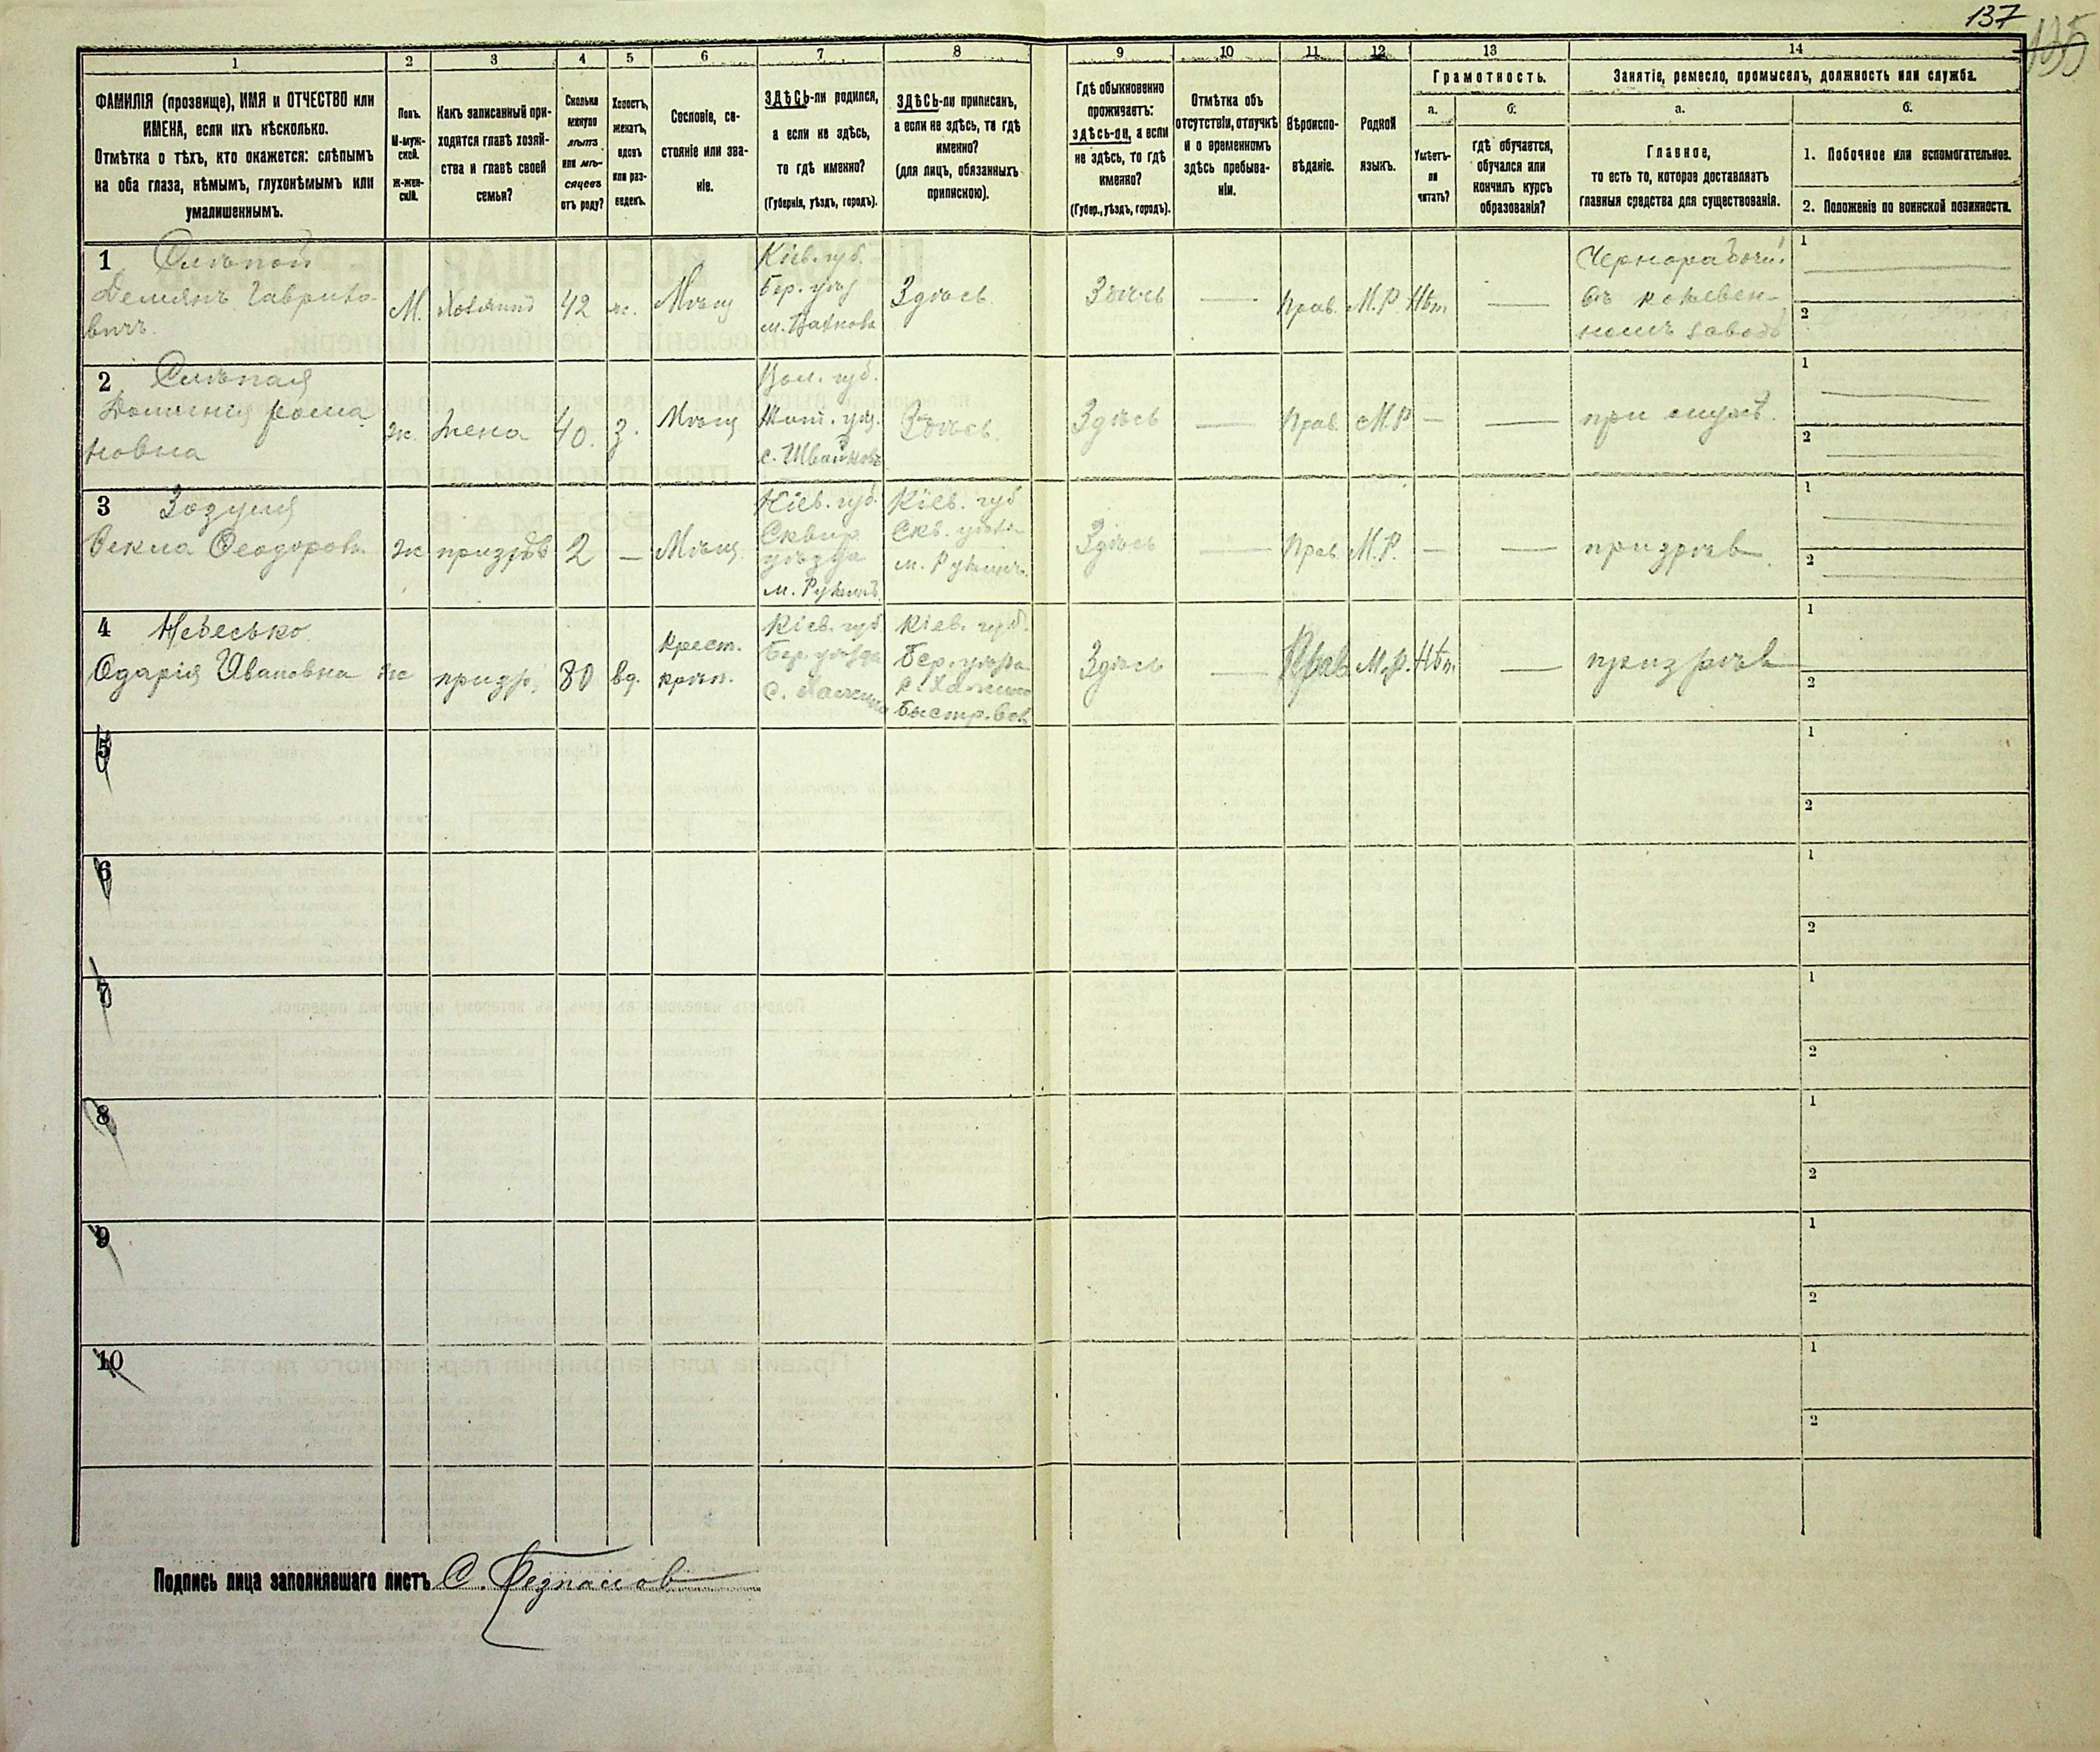 137
135
1 2 3 4 5 6 7 8 9 10 11 12 13 14
ФАМИЛІЯ (прозвище), ИМЯ и ОТЧЕСТВО или
ИМЕНА, если ихъ нѣсколько.
Отмѣтка о тѣхъ, кто окажется: слѣпымъ
на оба глаза, нѣмымъ, глухонѣмымъ или
умалишеннымъ.
Полъ.
М-муж-
ской.
Ж-жен-
скій.
Какъ записанный при-
ходится главѣ хозяй-
ства и главѣ своей
семьи?
Сколько
минуло
лѣтъ
или мѣ-
сяцевъ
отъ роду?
Холостъ,
женатъ,
вдовъ
или раз-
веденъ.
Сословіе, со-
стояніе или зва-
ніе.
ЗДѢСЬ-ли родился,
а если не здѣсь,
то гдѣ именно?
(Губернія, уѣздъ, городъ).
ЗДѢСЬ-ли приписанъ,
а если не здѣсь, то гдѣ
именно?
(для лицъ, обязанныхъ
припискою).
Гдѣ обыкновенно
проживаетъ:
здѣсь-ли, а если
не здѣсь, то гдѣ
именно?
(Губер., уѣздъ, городъ).
Отмѣтка объ
отсутствіи, отлучкѣ
и о временномъ
здѣсь пребыва-
ніи.
Вѣроиспо-
вѣданіе.
Родной
языкъ.
Грамотность.
а.
Умѣетъ-
ли
читать?
б.
гдѣ обучается,
обучался или
кончилъ курсъ
образованія?
Занятіе, ремесло, промыселъ, должность или служба.
а.
Главное,
то есть то, которое доставляетъ
главныя средства для существованія.
б.
1. Побочное или вспомогательное.
2. Положеніе по воинской повинности.
1 Слѣпой
Демянъ Гаврило-
вичъ
М.
Хозяинъ
42
ж.
Мѣщ
Кіев. губ.
Бер. уѣз
м.
Здѣсь.
Здѣсь
—
Прав.
М.Р.
Нѣт
—
Чернорабочій
въ кожевен-
номъ заводѣ
1
2
2 Слѣпая
Рома
новна
ж.
жена
40.
з.
Мѣщ
губ.
уѣз.
с.
Здѣсь
Здѣсь
—
Прав.
М.Р
—
—
при мужѣ.
1
2
3 Зозуля
Ѳекла Ѳеодоров.
ж
призрѣв
2
—
Мѣщ.
Кіев. губ.
Сквир.
уѣзда
м. Ружинъ
Кіев. губ
Скв. уѣзд
м. Ружинъ
Здѣсь
—
Прав
М.Р.
—
—
призрѣв
1
2
4 Небесько
Одарія Ивановна
ж
призр.
80
вд.
крест.
Кіев. губ
Бер. уѣзда
с.
Кіев. губ.
Бер. уѣзда
с.
Быстр. вол
Здѣсь
—
Прав
М.Р.
Нѣт
—
призрѣв
1
2
5
1
2
6
1
2
7
1
2
8
1
2
9
1
2
10
1
2
Подпись лица заполнявшаго листъ С.